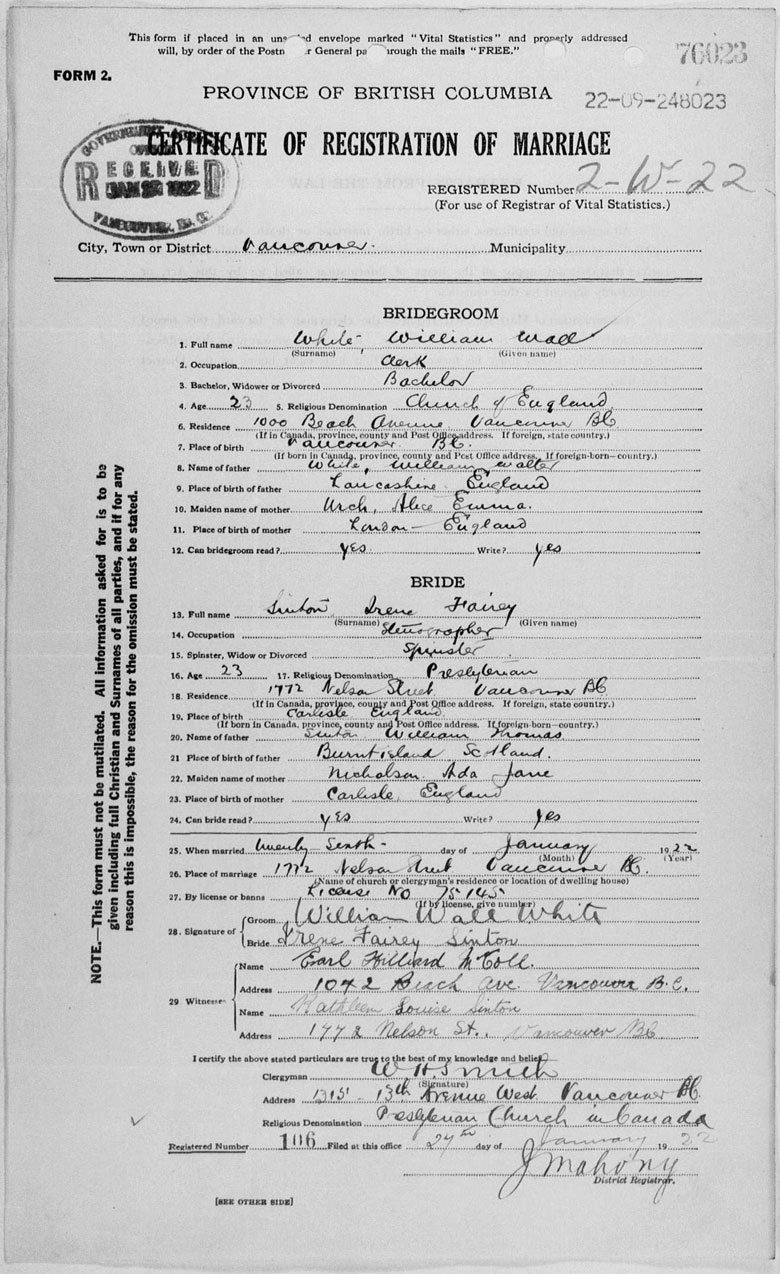 This form if placed in an unsealed envelope marked "Vital Statistics" and properly addressed
will, by order of the Postm r General pa through the mails "FREE."
76023
FORM 2.
PROVINCE OF BRITISH COLUMBIA
22-09-248023
CERTIFICATE OF REGISTRATION OF MARRIAGE
RECEIVED
1922
VANCOUVER, B.C.
REGISTERED Number 2-W-22
(For use of Registrar of Vital Statistics.)
City, Town or District Vancouver. Municipality
BRIDEGROOM
1. Full name White, William Wall
(Surname) (Given name)
2. Occupation Clerk
3. Bachelor, Widower or Divorced Bachelor
4. Age 23 5. Religious Denomination Church of England
6. Residence 1000 Beach Avenue Vancouver BC
(If in Canada, province, county and Post Office address. If foreign, state country.)
7. Place of birth Vancouver B.C.
(If born in Canada, province, county and Post Office address. If foreign-born—country.)
8. Name of father White, William Walter
9. Place of birth of father Lancashire England
10. Maiden name of mother Urch, Alice Emma.
11. Place of birth of mother London - England
12. Can bridegroom read? yes Write? yes
BRIDE
13. Full name Sinton, Irene Fairey
(Surname) (Given name)
14. Occupation Stenographer
15. Spinster, Widow or Divorced Spinster
16. Age 23 17. Religious Denomination Presbyterian
18. Residence 1772 Nelson Street Vancouver BC
(If in Canada, province, county and Post Office address. If foreign, state country.)
19. Place of birth Carlisle England
(If born in Canada, province, county and Post Office address. If foreign-born—country.)
20. Name of father Sinton William Thomas
21 Place of birth of father Burntisland Scotland.
22. Maiden name of mother Nicholson Ada Jane
23. Place of birth of mother Carlisle, England
24. Can bride read? yes Write? yes
25. When married Twenty Sixth day of January 1922
(Month) (Year)
26. Place of marriage 1772 Nelson Street Vancouver BC.
(Name of church or clergyman's residence or location of dwelling house)
27. By license or banns License No 75145
(If by license, give number)
28. Signature of Groom William Wall White
Bride Irene Fairey Sinton
29 Witnesses Name Earl Hilliard McColl.
Address 1042 Beach Ave. Vancouver B.C.
Name Kathleen Louise Sinton
Address 1772 Nelson St., Vancouver BC
I certify the above stated particulars are true to the best of my knowledge and belief.
Clergyman W H Smith
(Signature)
Address 1315 - 13th Avenue West Vancouver BC.
Religious Denomination Presbyterian Church in Canada
Registered Number 106 Filed at this office 27th day of January 1922
J Mahony
District Registrar.
[SEE OTHER SIDE]
NOTE.—This form must not be mutilated. All information asked for is to be
given including full Christian and Surnames of all parties, and if for any
reason this is impossible, the reason for the omission must be stated.